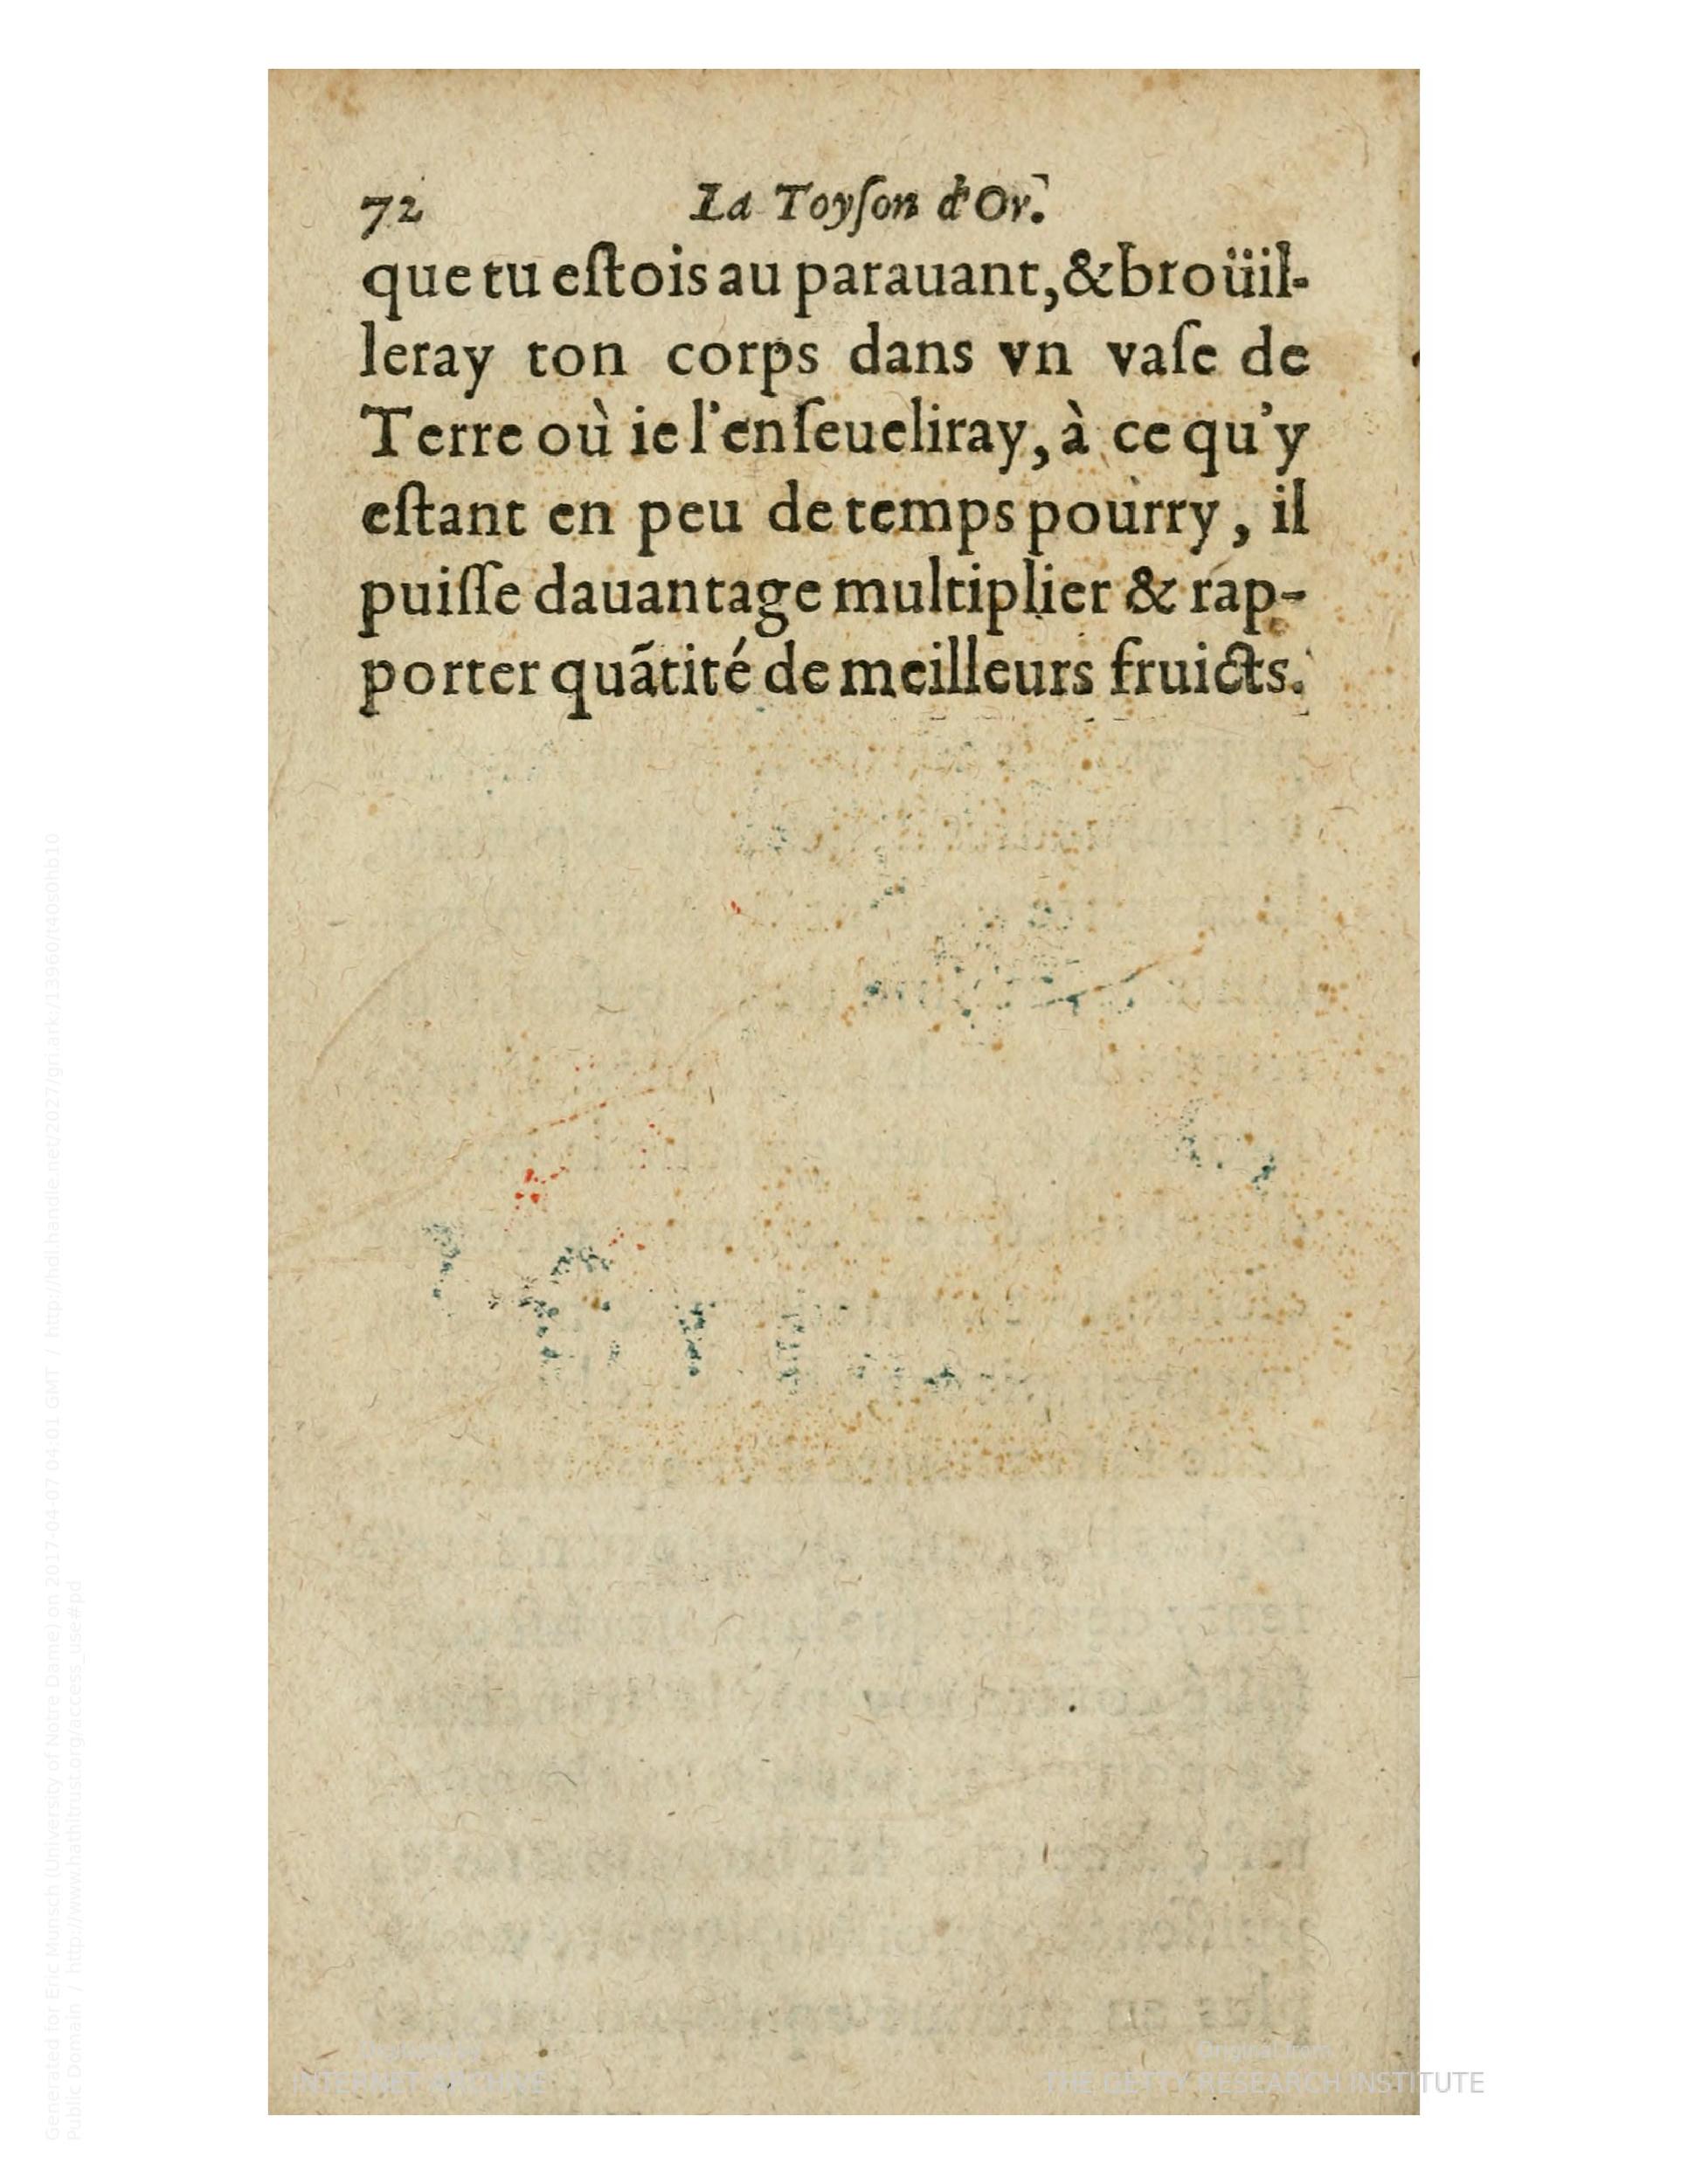 72 La Toyſon d'Or.
que tu eſtois au parauant, & broüil-
leray ton corps dans vn vaſe de
Terre où ie l'enſeueliray, à ce qu'y
eſtant en peu de temps pourry, il
puiſſe dauantage multiplier & rap-
porter quãtité de meilleurs fruicts.
INTERNET ARCHIVE
Original from
THE GETTY RESEARCH INSTITUTE
Generated for Eric Munsch (University of Notre Dame) on 2017-04-07 04:01 GMT / http://hdl.handle.net/2027/gri.ark:/13960/t40s0hb10
Public Domain / http://www.hathitrust.org/access_use#pd